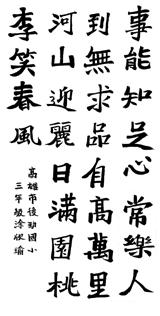 事能知足心常樂人
到無求品自高萬里
河山迎麗日滿園桃
李笑春風
高雄市後勁國小
三年級涂